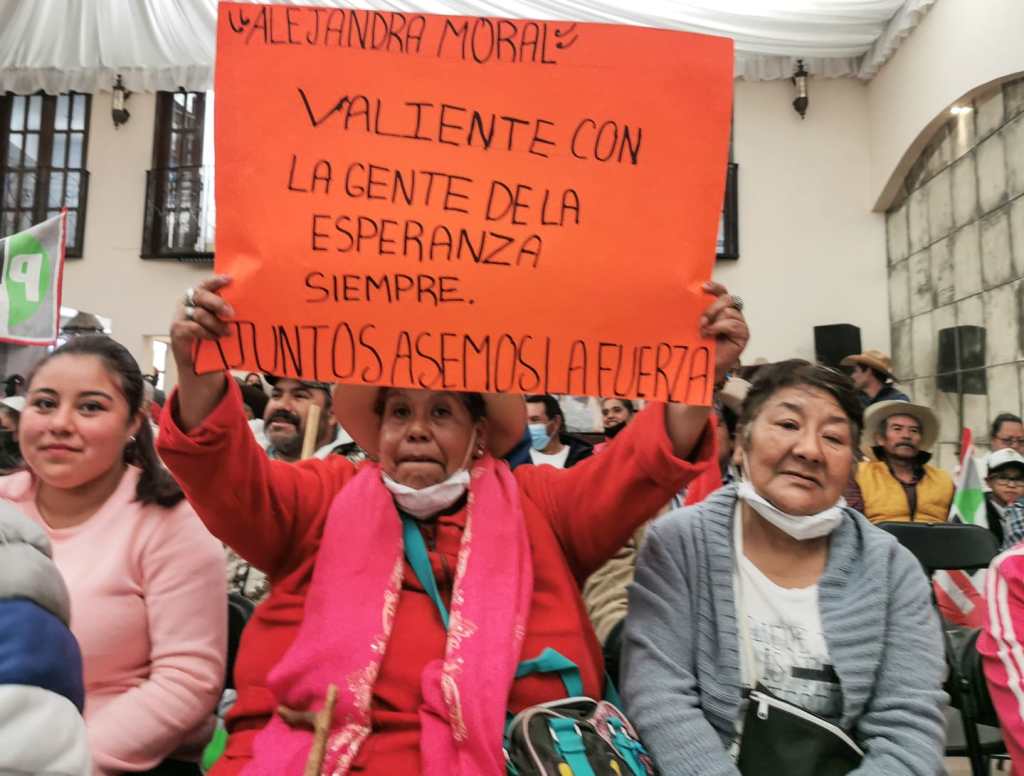 "ALEJANDRA MORAL"
VALIENTE CON
LA GENTE DE LA
ESPERANZA
SIEMPRE.
JUNTOS ASEMOS LA FUERZA
P